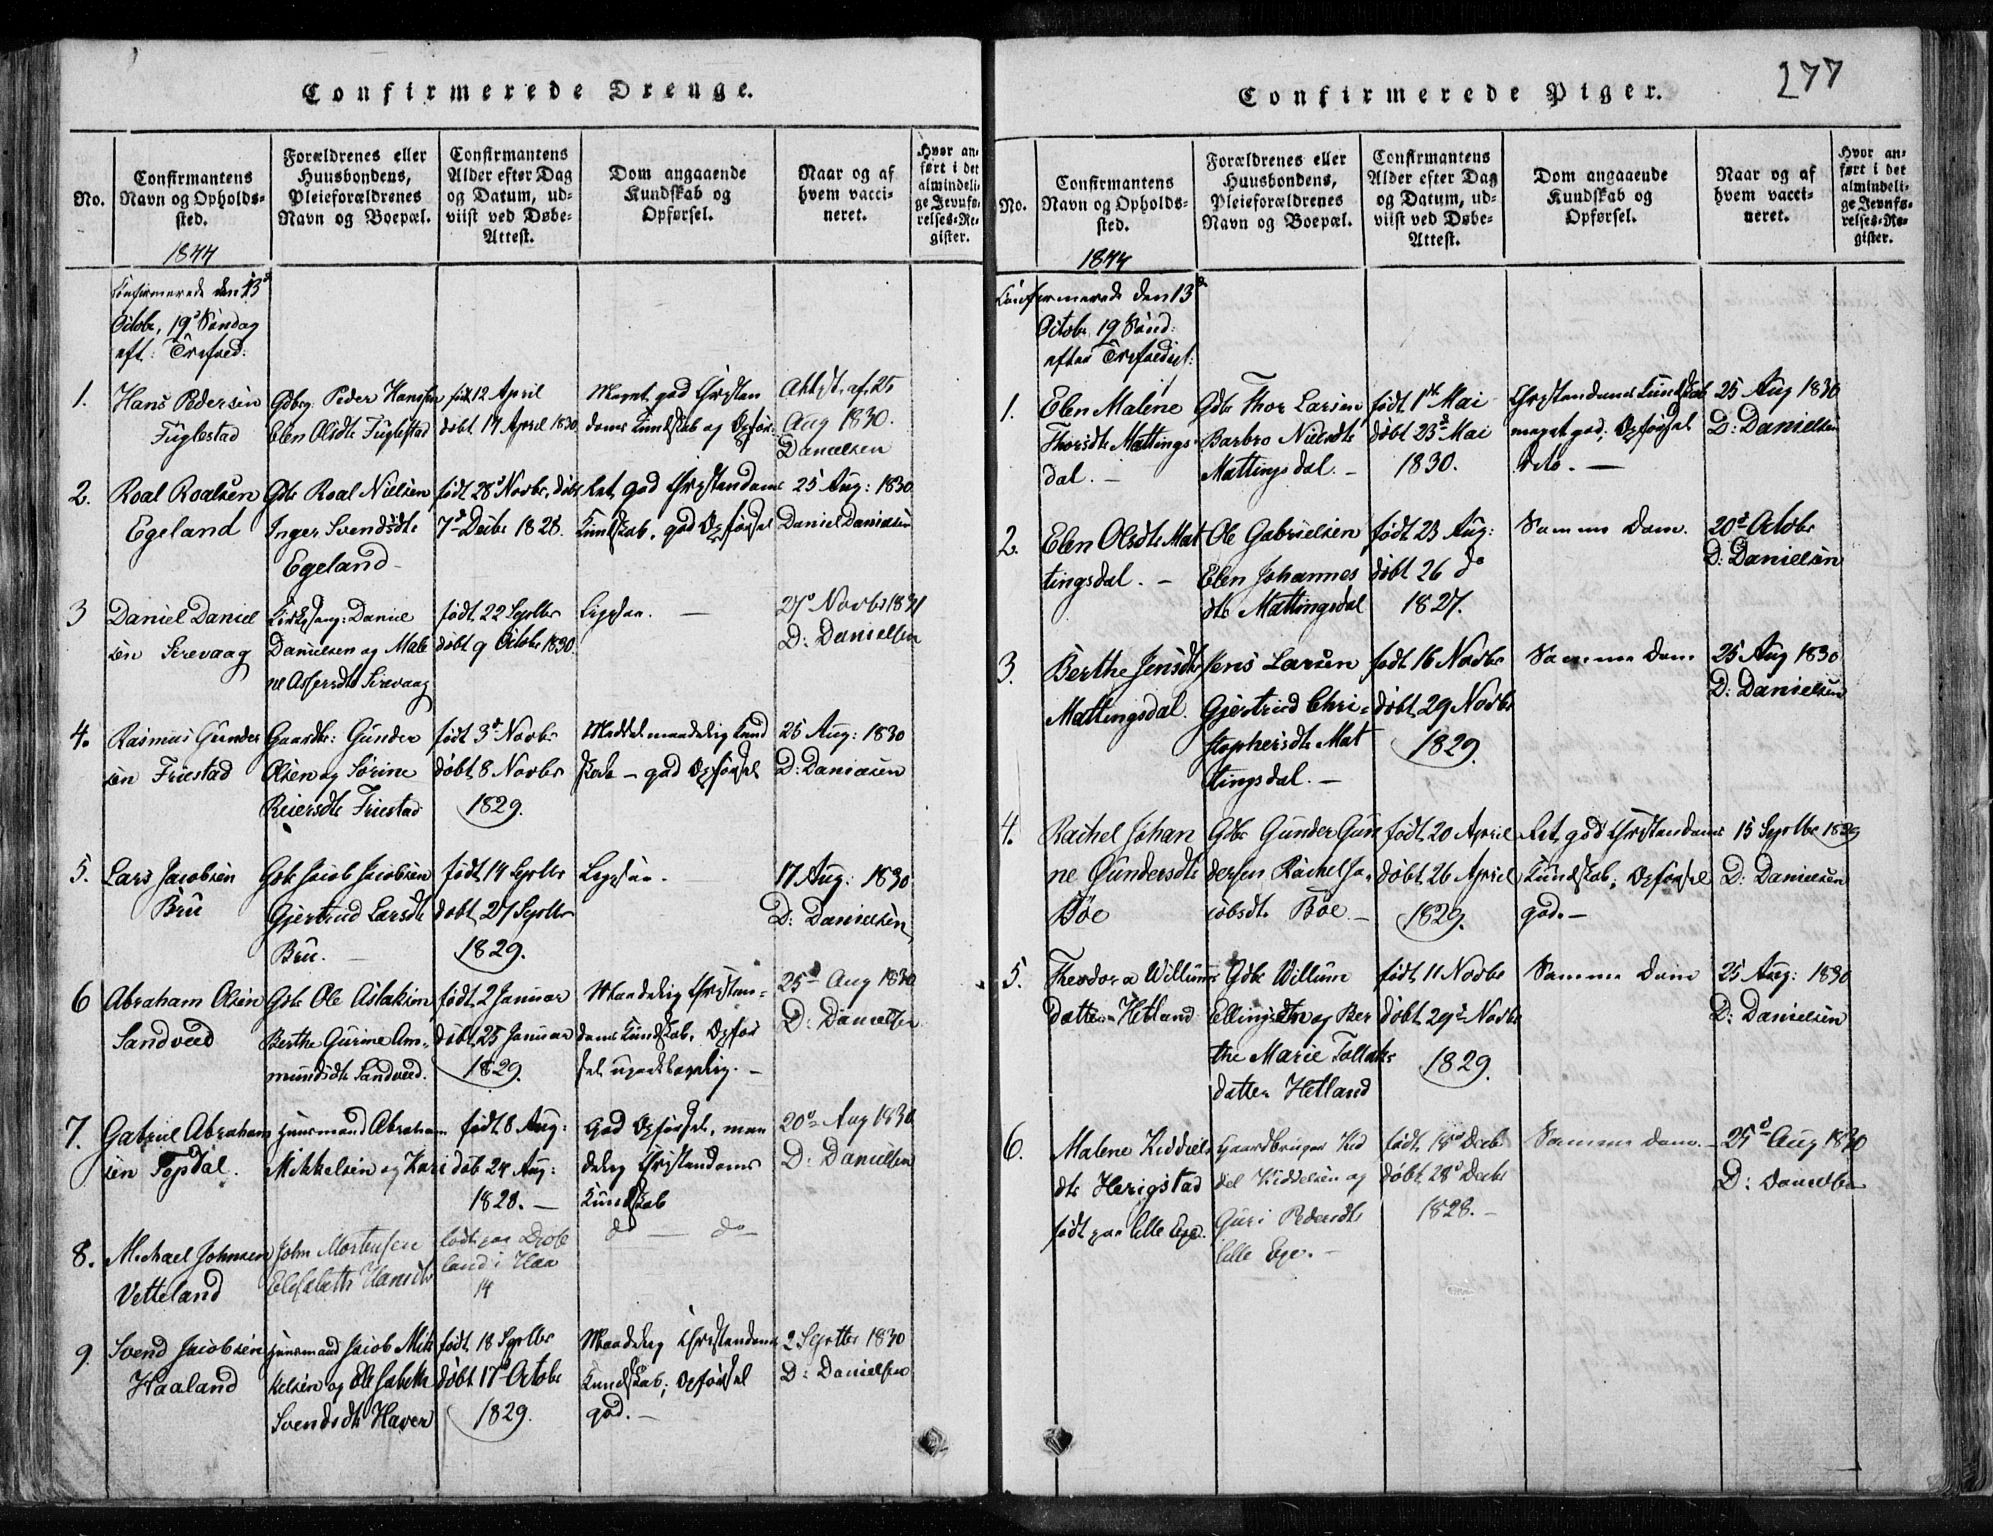 Confirmerede Drenge.
No.
Confirmantens
Navn og Opholds-
sted.
Forældrenes eller
Huusbondens,
Pleieforældrenes
Navn og Boepæl.
Confirmantens
Alder efter Dag
og Datum, ud-
viist ved Døbe-
Attest.
Dom angaaende
Kundskab og
Opførsel.
Naar og af
hvem vacci-
neret.
Hvor an-
ført i det
almindeli-
ge Jevnfø-
relses-Re-
gister.
1844
Confirmerede den 13d
Octobr, 19d Søndag
eft: Trefoed:
1.
Hans Pedersen
Fuglestad
Gdbrg. Peder Hansen
Elen Olsdtr Fuglestad
født 12 April
døbt 17 April 1830
Meget god Christen
doms Kundskab og Opfør:
Attest. af 25
Aug 1830.
Danielsen
2.
Roal Roalsen
Egeland
Gdbr Roal Nielsen
Inger Svendsdtr
Egeland
født 28d Novbr, døbt
7d Decbr 1828.
Ret god Christendoms
Kundskab, god Opførsel
25 Aug: 1830
Daniel Danielsen
3
Daniel Daniel
sen Sirevaag
Kirkesang: Daniel
Danielsen og Male
ne Assersdtr Sirevaag
født 22 Septbr
døbt 9 Octobr 1830.
Ligesaa. —
27d Novbr 1831
D: Danielsen
4.
Rasmus Gunder
sen Friestad
Gaardbr: Gunder
Olsen og Sørine
Reiersdtr Friestad
født 3d Novbr
døbt 8 Novbr
1829.
Middelmaadelig Kund
skab — god Opførsel
25 Aug: 1830
D: Danielsen
5.
Lars Jacobsen
Bru
Gdbr Jacob Jacobsen
Gjertrud Larsdtr
Bru. —
født 14 Septbr
døbt 27 Septbr
1829.
Ligesaa.
17 Aug: 1830
D: Danielsen
6
Abraham Olsen
Sandved
Gdbr Ole Aslaksen
Berthe Gurine Om-
mundsdtr Sandved.
født 2 Januar
døbt 25 Januar
1829.
Maadelig Christen-
doms Kundskab, Opfør
sel upaaklagelig. —
25d Aug 1830
D: Danielsen
7.
Gabriel Abraham
sen Topdal.
Huusmand Abraham
Mikkelsen og Kari
født 8 Aug:
døb 24 Aug:
1828. —
God Opførsel, maa
delig Christendoms
Kundskab
20d Aug 1830
D: Danielsen
8.
Michael Johnsen
Vetteland
John Mortensen
Elisabeth Hansdtr
født paa
land i Haa
14
do — do
9.
Svend Jacobsen
Haaland
Huusmand Jacob Mik
kelsen og Elisabeth
Svendsdtr Haver
født 18 Septbr
døbt 17d Octobr
1829.
Maadelig Christendoms
Kundskab; Opførsel
god. —
2 Septbr 1830
D: Danielsen
Confirmerede Piger.
277
No.
Confirmantens
Navn og Opholds-
sted.
Forældrenes eller
Huusbondens,
Pleieforældrenes
Navn og Boepæl.
Confirmantens
Alder efter Dag
og Datum, ud-
viist ved Døbe-
Attest.
Dom angaaende
Kundskab og
Opførsel.
Naar og af
hvem vacci-
neret.
Hvor an-
ført i det
almindeli-
ge Jevnfø-
relses-Re-
gister.
1844
Confirmerede den 13d
Octobr 19 Sønd:
efter Trefoedigh:
1.
Elen Malene
Thorsdtr Mattings-
dal. —
Gdbr Thor Larsen
Barbro Nielsdtr
Mattingsdal. —
født 1ste Mai
døbt 23d Mai
1830.
Christendoms Kundskab
meget god; Opførsel
dito. —
25 Aug 1830
D: Danielsen
2.
Elen Olsdtr Mat
tingsdal. —
Ole Gabrielsen
Elen Johannes
dtr Mattingsdal
født 23 Aug:
døbt 26 do
1827.
Samme Dom.
20d Octobr
D: Danielsen
3.
Berthe Jensdtr
Mattingsdal.
Jens Larsen
Gjertrud Chri-
stophersdtr Mat
tingsdal. —
født 16 Novbr
døbt 29 Novbr
1829.
Samme Dom
25 Aug 1830
D: Danielsen
4.
Rachel Johan
ne Gundersdtr
Bøe
Gdbr Gunder Gun
dersen Rachel Ja-
cobsdtr Bøe. —
født 20 April
døbt 26 April
1829.
Ret god Christendoms
Kundskab; Opførsel
god. —
15 Septbr 1839
D: Danielsen
5.
Theodora Willums
datter Hetland
Gdbr Willum
Ellingsen og Ber
the Marie Tollaks
datter Hetland
født 11 Novbr
døbt 29d Novbr
1829.
Samme Dom
25 Aug: 1830
D: Danielsen
6.
Malene Kiddiels
dtr Herigstad
født paa lille Ege.
Gaardbruger Kid
del Kiddelsen og
Guri Pedersdtr
lille Ege. —
født 18d Decb
døbt 28d Decbr
1828. —
Samme Dom. —
25d Aug 1830
D: Danielsen